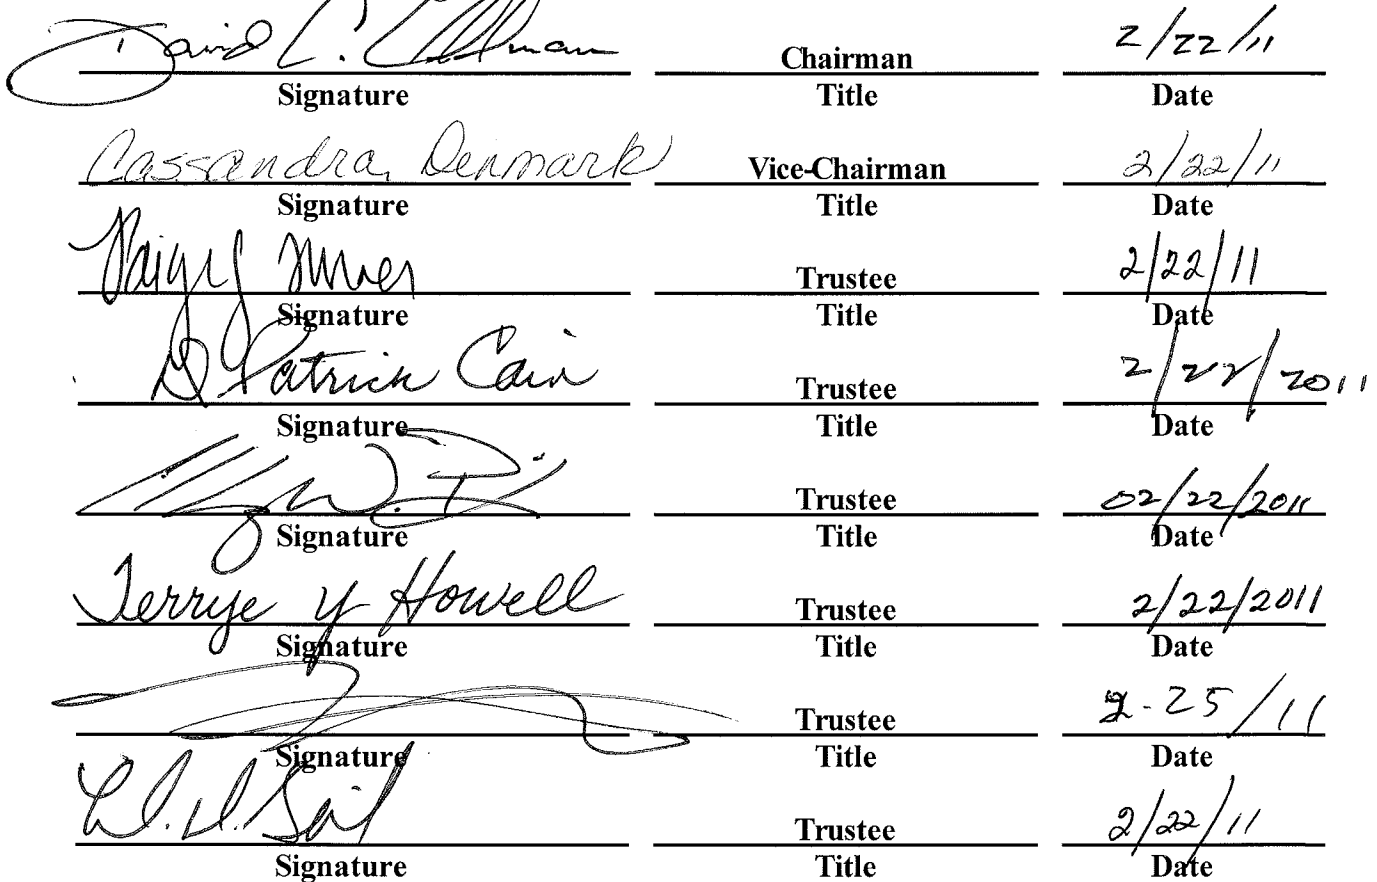 David C. Chairman 2/22/11
Signature Title Date
Cassandra Denmark Vice-Chairman 2/22/11
Signature Title Date
Trustee 2/22/11
Signature Title Date
Patrick Cain Trustee 2/22/2011
Signature Title Date
Trustee 02/22/2011
Signature Title Date
Terrye Y Howell Trustee 2/22/2011
Signature Title Date
Trustee 2-25/11
Signature Title Date
Trustee 2/22/11
Signature Title Date